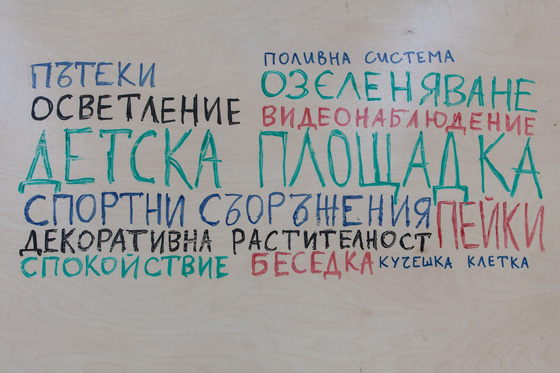 ПОЛИВНА СИСТЕМА
ПЪТЕКИ
ОЗЕЛЕНЯВАНЕ
ОСВЕТЛЕНИЕ
ВИДЕОНАБЛЮДЕНИЕ
ДЕТСКА ПЛОЩАДКА
СПОРТНИ СЪОРЪЖЕНИЯ
ПЕЙКИ
ДЕКОРАТИВНА РАСТИТЕЛНОСТ
СПОКОЙСТВИЕ
БЕСЕДКА
КУЧЕШКА КЛЕТКА